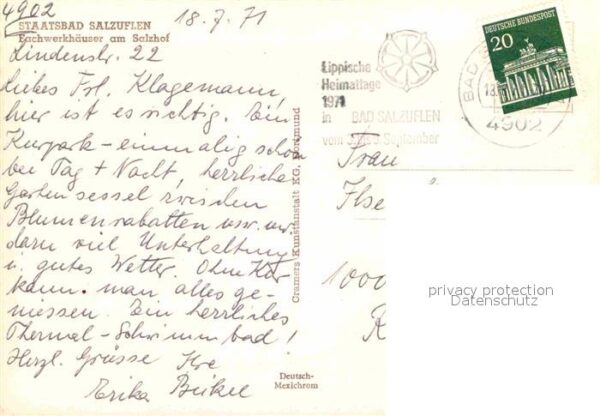 4902
18.7.71
STAATSBAD SALZUFLEN
Fachwerkhäuser am Salzhof
Lindenstr. 22
Liebes Frl. Klagemann,
hier ist es richtig. Ein
Kurpark - einmalig schön
bei Tag + Nacht, herrliche
Gartensessel zwischen
Blumenrabatten usw.
dazu viel Unterhaltung
u. gutes Wetter. Ohne Kur
kann man alles ge-
niessen. Ein herrliches
Thermal-Schwimmbad!
Herzl. Grüsse Ihre
Erika
Cramers Kunstanstalt KG, Dortmund
Deutsch-
Mexichrom
Lippische
Heimattage
1971
in BAD SALZUFLEN
September
DEUTSCHE BUNDESPOST
20
BAD
18.
4902
Frau
Ilse
1000
privacy protection
Datenschutz